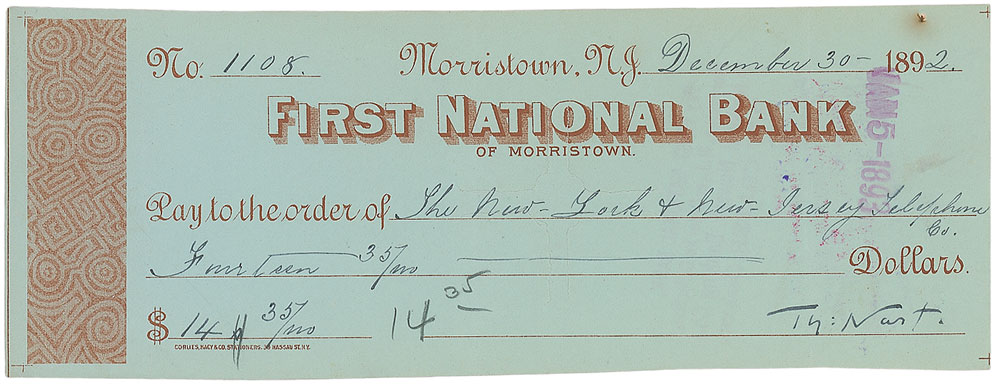 No. 1108. Morristown, N.J. December 30- 1892.
FIRST NATIONAL BANK
OF MORRISTOWN.
JAN 5-1893
Pay to the order of The New-York & New-Jersey Telephone Co.
Fourteen 35/100 Dollars.
$ 14 35/100 14 35 Th: Nast.
CORLIES, MACY & CO. STATIONERS. 39 NASSAU ST. N.Y.